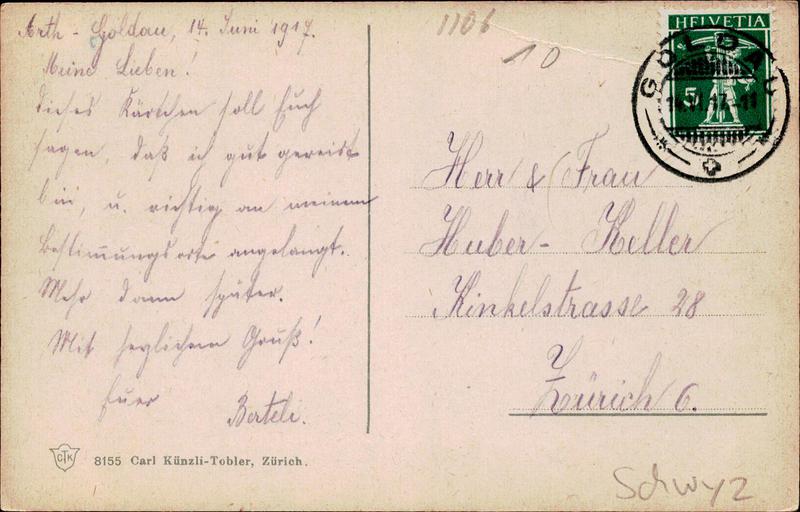 Arth - Goldau, 14. Juni 1917.
Meine Lieben!
Dieses Kärtchen soll Euch
sagen, daß ich gut gereist
bin, u. richtig an meinem
Bestimmungsorte angelangt.
Mehr dann später.
Mit herzlichem Gruß!
Euer
Berteli.
8155 Carl Künzli-Tobler, Zürich.
CTK
1106
10
HELVETIA
5
GOLDAU
14.VI.17.-11
Herr & Frau
Huber - Keller
Kinkelstrasse 28
Zürich 6.
Schwyz